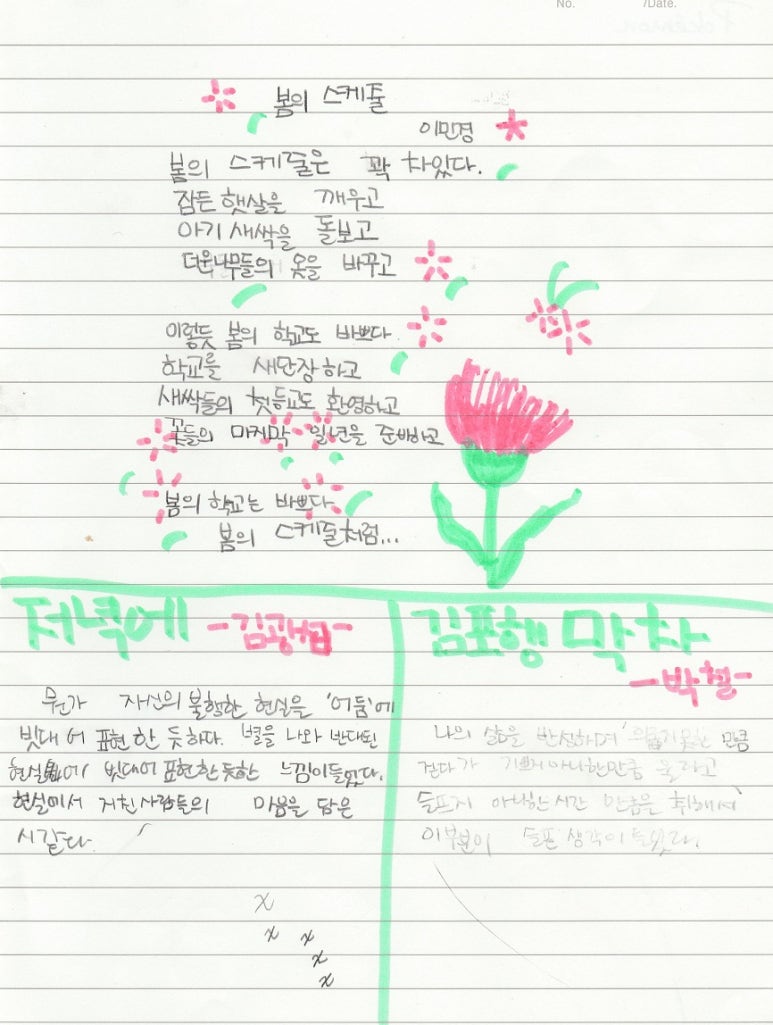 No. /Date.
봄의 스케줄
이민경
봄의 스케줄은 꽉 차있다.
잠든 햇살을 깨우고
아기 새싹을 돌보고
더운나무들의 옷을 바꾸고
이렇듯 봄의 학교도 바쁘다
학교를 새단장하고
새싹들의 첫등교도 환영하고
꽃들의 마지막 일년을 준비하고
봄의 학교는 바쁘다
봄의 스케줄처럼...
저녁에 -김광섭-
뭔가 자신의 불행한 현실을 '어둠'에
빗대어 표현한 듯하다. 별을 나와 반대된
현실에 빗대어 표현한듯한 느낌이들었다.
현실에서 지친사람들의 마음을 담은
시같다.
김포행 막차
-박철-
나의 삶을 반성하며 '외롭지 못한 만큼
걷다가 기쁘지아니한만큼 울리고
슬프지 아니한시간 만큼을 취해서'
이부분이 슬픈 생각이 들었다.
x
x x
x
x